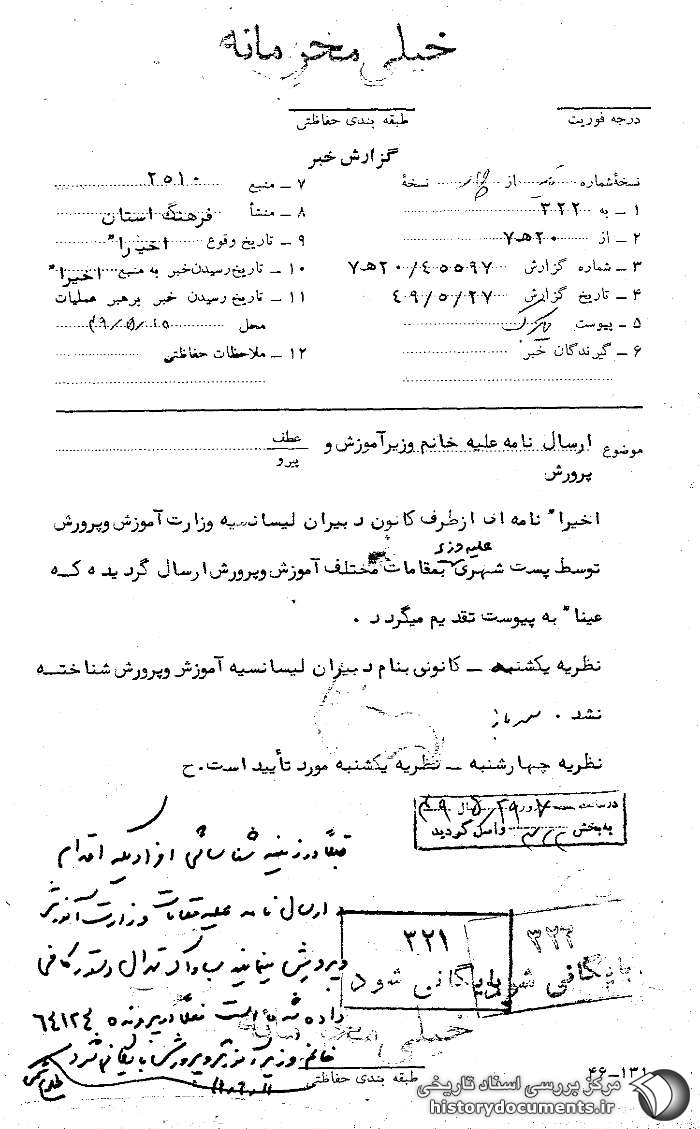 خیلی محرمانه
درجه فوریت
طبقه بندی حفاظتی
گزارش خبر
نسخهٔ شماره از نسخهٔ
۱ ـ به ۳۲۲
۲ ـ از ۲۰هـ۷
۳ ـ شماره گزارش ۴۵۵۹۷/۲۰هـ۷
۴ ـ تاریخ گزارش ۴۹/۵/۲۷
۵ ـ پیوست
۶ ـ گیرندگان خبر
۷ ـ منبع ۲۵۱۰
۸ ـ منشأ فرهنگ استان
۹ ـ تاریخ وقوع اخیرا"
۱۰ ـ تاریخ رسیدن خبر به منبع اخیرا"
۱۱ ـ تاریخ رسیدن خبر برهبر عملیات
محل
۱۲ ـ ملاحظات حفاظتی
موضوع ارسال نامه علیه خانم وزیر آموزش و
پرورش
عطف
پیرو
اخیرا" نامه ای از طرف کانون دبیران لیسانسیه وزارت آموزش وپرورش
علیه وزیر
توسط پست شهری بمقامات مختلف آموزش وپرورش ارسال گردیده که
عینا" به پیوست تقدیم میگردد .
نظریه یکشنبه ـ کانونی بنام دبیران لیسانسیه آموزش وپرورش شناخته
نشد .
نظریه چهارشنبه ـ نظریه یکشنبه مورد تأیید است. ح
در ساعت
به بخش واصل گردید
قبلاً در زمینه شناسائی افرادیکه اقدام
به ارسال نامه علیه مقامات وزارت آموزش
و پرورش مینمایند بساواک دستور کافی
داده شده است فعلاً در پرونده ۶۴۱۲۴۰
خانم وزیر آموزش و پرورش بایگانی شود
۳۲۱
بایگانی شود
۳۲۲
بایگانی شود
خیلی محرمانه
طبقه بندی حفاظتی
۴۶-۱۳۱
مرکز بررسی اسناد تاریخی
historydocuments.ir